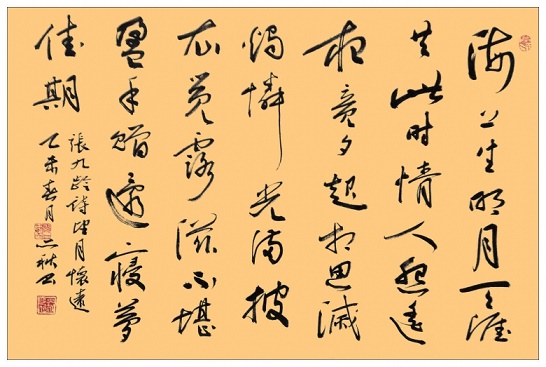 海上生明月天涯
共此时情人怨遥
夜竟夕起相思滅
燭憐光满披
衣覺露滋不堪
盈手贈還寢夢
佳期
張九齡詩望月懷遠
乙未春月